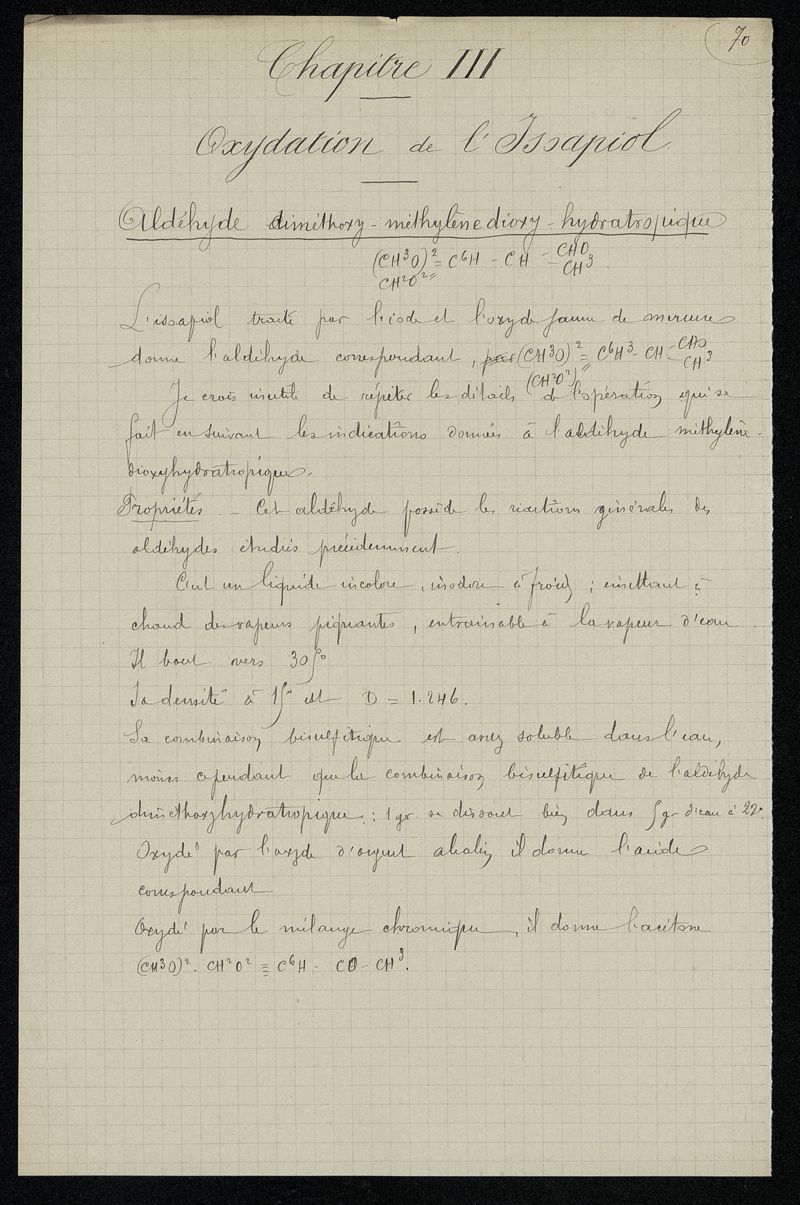 70
Chapitre III
Oxydation de l'Issapiol.
Aldéhyde diméthoxy-méthylènedioxy-hydratropique
(CH³O)² = C⁶H - CH - CHO
CH²O² = - CH³
L'issapiol traité par l'iode et l'oxyde jaune de mercure
donne l'aldéhyde correspondant, (CH³O)² = C⁶H³- CH - CHO
(CH²O²) = CH³
Je crois inutile de répéter les détails de l'opération qui se
fait en suivant les indications données à l'aldéhyde méthylène-
dioxyhydratropique.
Propriétés. - Cet aldéhyde possède les réactions générales des
aldéhydes étudiés précédemment.
C'est un liquide incolore, inodore à froid ; émettant à
chaud des vapeurs piquantes, entrainable à la vapeur d'eau.
Il bout vers 305°
Sa densité à 15° est D = 1.246.
Sa combinaison bisulfitique est assez soluble dans l'eau,
moins cependant que la combinaison bisulfitique de l'aldéhyde
diméthoxyhydratropique : 1 gr. se dissout bien dans 5 gr d'eau à 22°.
Oxydé par l'oxyde d'argent alcalin il donne l'acide
correspondant
Oxydé par le mélange chromique, il donne l'acétone
(CH³O)². CH²O² ≡ C⁶H - CO - CH³.